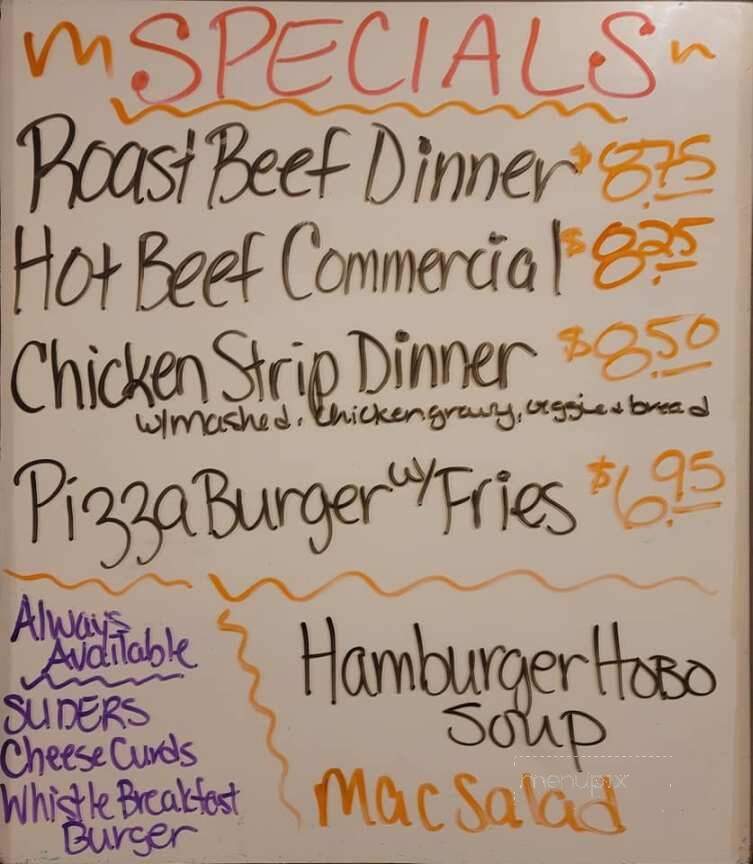 SPECIALS
Roast Beef Dinner $8.75
Hot Beef Commercial $8.25
Chicken Strip Dinner $8.50
w/mashed, chicken gravy, veggie & bread
Pizza Burger w/ Fries $6.95
Always
Available
SLIDERS
Cheese Curds
Whistle Breakfast
Burger
Hamburger Hobo
Soup
Mac Salad
menupix